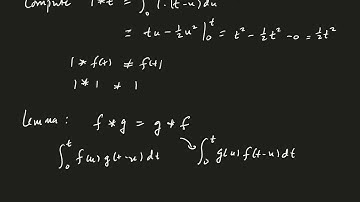 Compute 1 * t = ∫₀ᵗ 1·(t-u) du
= tu - ½u² |₀ᵗ = t² - ½t² - 0 = ½t²
1 * f(t) ≠ f(t)
1 * 1 ≠ 1
Lemma: f * g = g * f
∫₀ᵗ f(u) g(t-u) dt ∫₀ᵗ g(u) f(t-u) dt